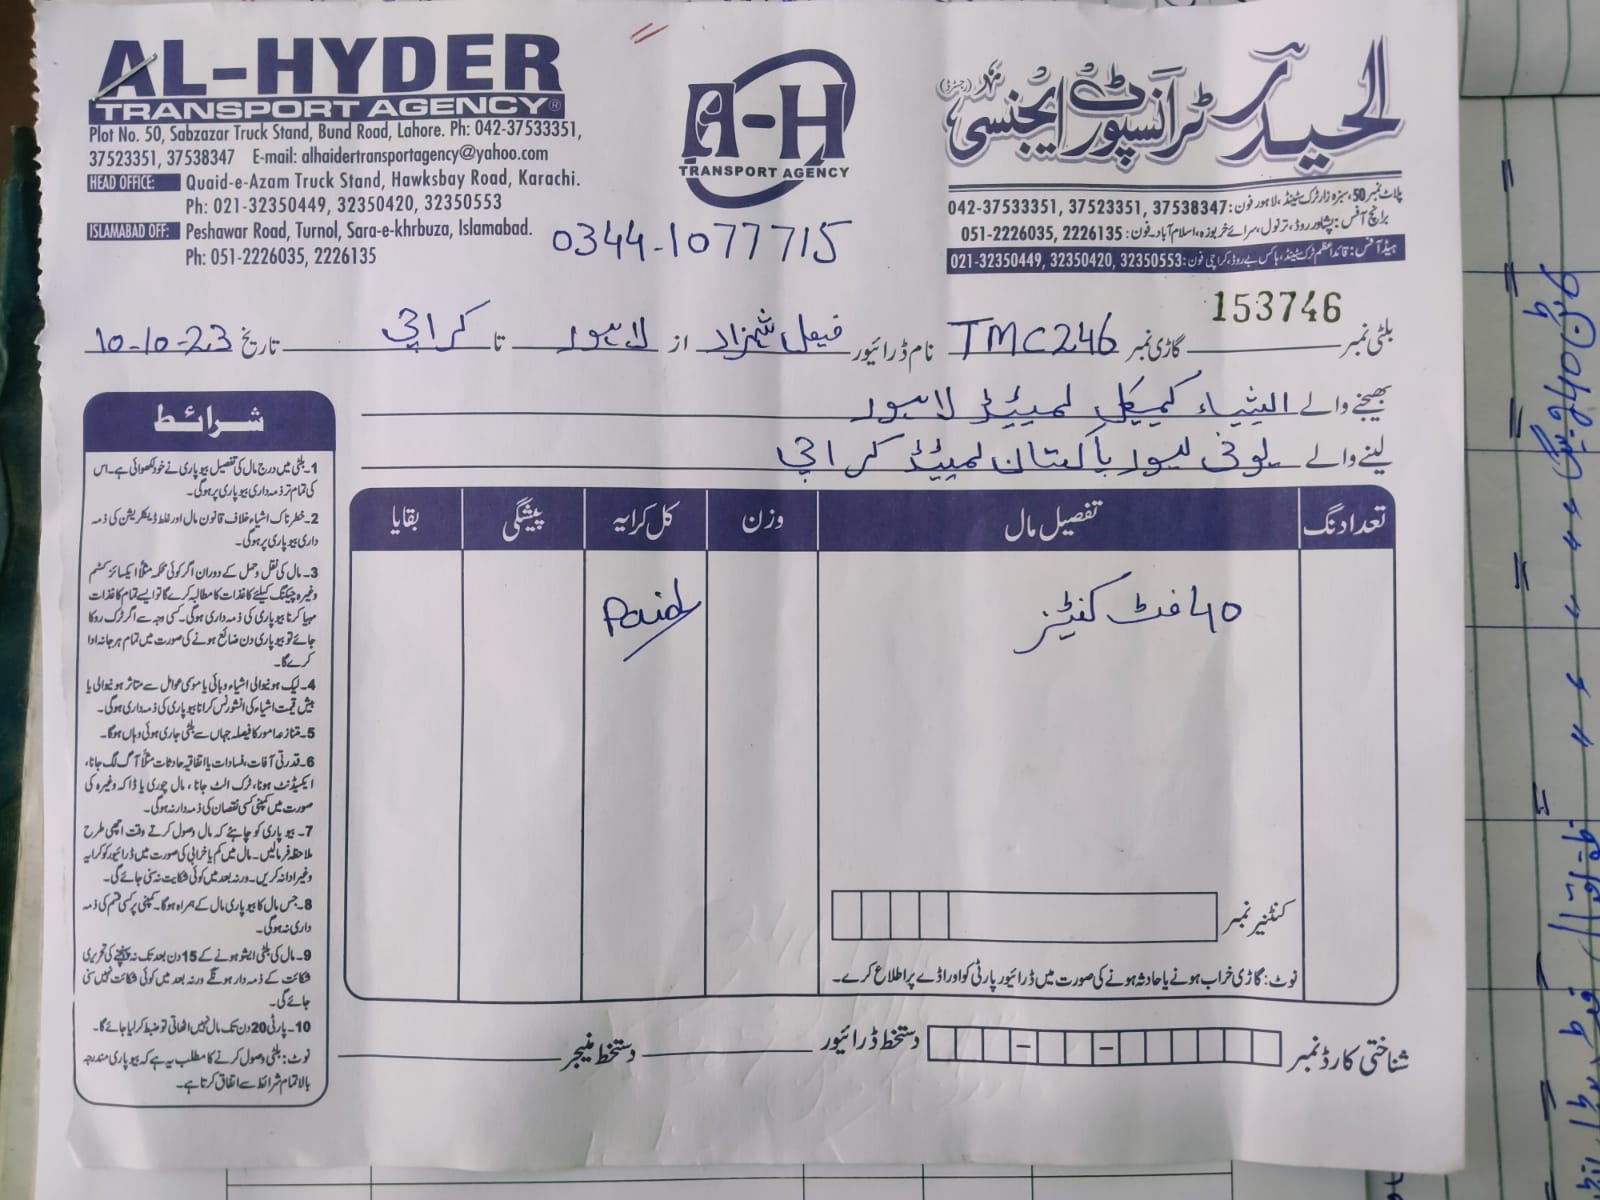 AL-HYDER
TRANSPORT AGENCY®
Plot No. 50, Sabzazar Truck Stand, Bund Road, Lahore. Ph: 042-37533351,
37523351, 37538347 E-mail: alhaidertransportagency@yahoo.com
HEAD OFFICE: Quaid-e-Azam Truck Stand, Hawksbay Road, Karachi.
Ph: 021-32350449, 32350420, 32350553
ISLAMABAD OFF: Peshawar Road, Turnol, Sara-e-khrbuza, Islamabad.
Ph: 051-2226035, 2226135
A-H
TRANSPORT AGENCY
0344-1077715
الحیدر ٹرانسپورٹ ایجنسی (رجسٹرڈ)
پلاٹ نمبر 50، سبزہ زار ٹرک سٹینڈ، لاہور فون: 042-37533351, 37523351, 37538347
برانچ آفس: پشاور روڈ، ترنول، سرائے خربوزہ، اسلام آباد۔ فون: 051-2226035, 2226135
ہیڈ آفس: قائد اعظم ٹرک سٹینڈ، ہاکس بے روڈ، کراچی فون: 021-32350449, 32350420, 32350553
153746
بلٹی نمبر گاڑی نمبر TMC246 نام ڈرائیور فیصل شہزاد از لاہور تا کراچی تاریخ 10-10-23
بھیجنے والے ایشیاء کیمیکل لمیٹڈ لاہور
لینے والے یونی لیور پاکستان لمیٹڈ کراچی
تعداد نگ تفصیل مال وزن کل کرایہ پیشگی بقایا
40 فٹ کنٹینر Paid
کنٹینر نمبر
نوٹ: گاڑی خراب ہونے یا حادثہ ہونے کی صورت میں ڈرائیور پارٹی کو اور اڈے پر اطلاع کرے۔
شناختی کارڈ نمبر دستخط ڈرائیور دستخط منیجر
شرائط
1۔ بلٹی میں درج مال کی تفصیل بیوپاری نے خود لکھوائی ہے۔ اس
کی تمام تر ذمہ داری بیوپاری پر ہوگی۔
2۔ خطرناک اشیاء خلاف قانون مال اور غلط ڈیکلریشن کی ذمہ
داری بیوپاری پر ہوگی۔
3۔ مال کی نقل و حمل کے دوران اگر کوئی محکمہ مثلاً ایکسائز کسٹم
وغیرہ چیکنگ کیلئے کاغذات کا مطالبہ کرے گا تو ایسے تمام کاغذات
مہیا کرنا بیوپاری کی ذمہ داری ہوگی۔ کسی وجہ سے اگر ٹرک روکا
جائے تو بیوپاری دن ضائع ہونے کی صورت میں تمام ہرجانہ ادا
کرے گا۔
4۔ لیک ہونیوالی اشیاء وبائی یا موسمی عوامل سے متاثر ہونیوالی یا
بیش قیمت اشیاء کی انشورنس کرانا بیوپاری کی ذمہ داری ہوگی۔
5۔ متنازعہ امور کا فیصلہ جہاں سے بلٹی جاری ہوئی وہاں ہوگا۔
6۔ قدرتی آفات، فسادات یا اتفاقیہ حادثات مثلاً آگ لگ جانا،
ایکسیڈنٹ ہونا، ٹرک الٹ جانا، مال چوری یا ڈاکہ وغیرہ کی
صورت میں کمپنی کسی نقصان کی ذمہ دار نہ ہوگی۔
7۔ بیوپاری کو چاہئے کہ مال وصول کرتے وقت اچھی طرح
ملاحظہ فرمالیں۔ مال میں کم یا خرابی کی صورت میں ڈرائیور کو کرایہ
وغیرہ ادا نہ کریں۔ ورنہ بعد میں کوئی شکایت نہ سنی جائے گی۔
8۔ جس مال کا بیوپاری مال کے ہمراہ ہوگا۔ کمپنی پر کسی قسم کی ذمہ
داری نہ ہوگی۔
9۔ مال کی بلٹی ایشو ہونے کے 15 دن بعد تک نہ پہنچنے کی تحریری
شکائت کے ذمہ دار ہونگے ورنہ بعد میں کوئی شکائت نہیں سنی
جائے گی۔
10۔ پارٹی 20 دن تک مال نہیں اٹھاتی تو ضبط کر لیا جائے گا۔
نوٹ: بلٹی وصول کرنے کا مطلب یہ ہے کہ بیوپاری مندرجہ
بالا تمام شرائط سے اتفاق کرتا ہے۔